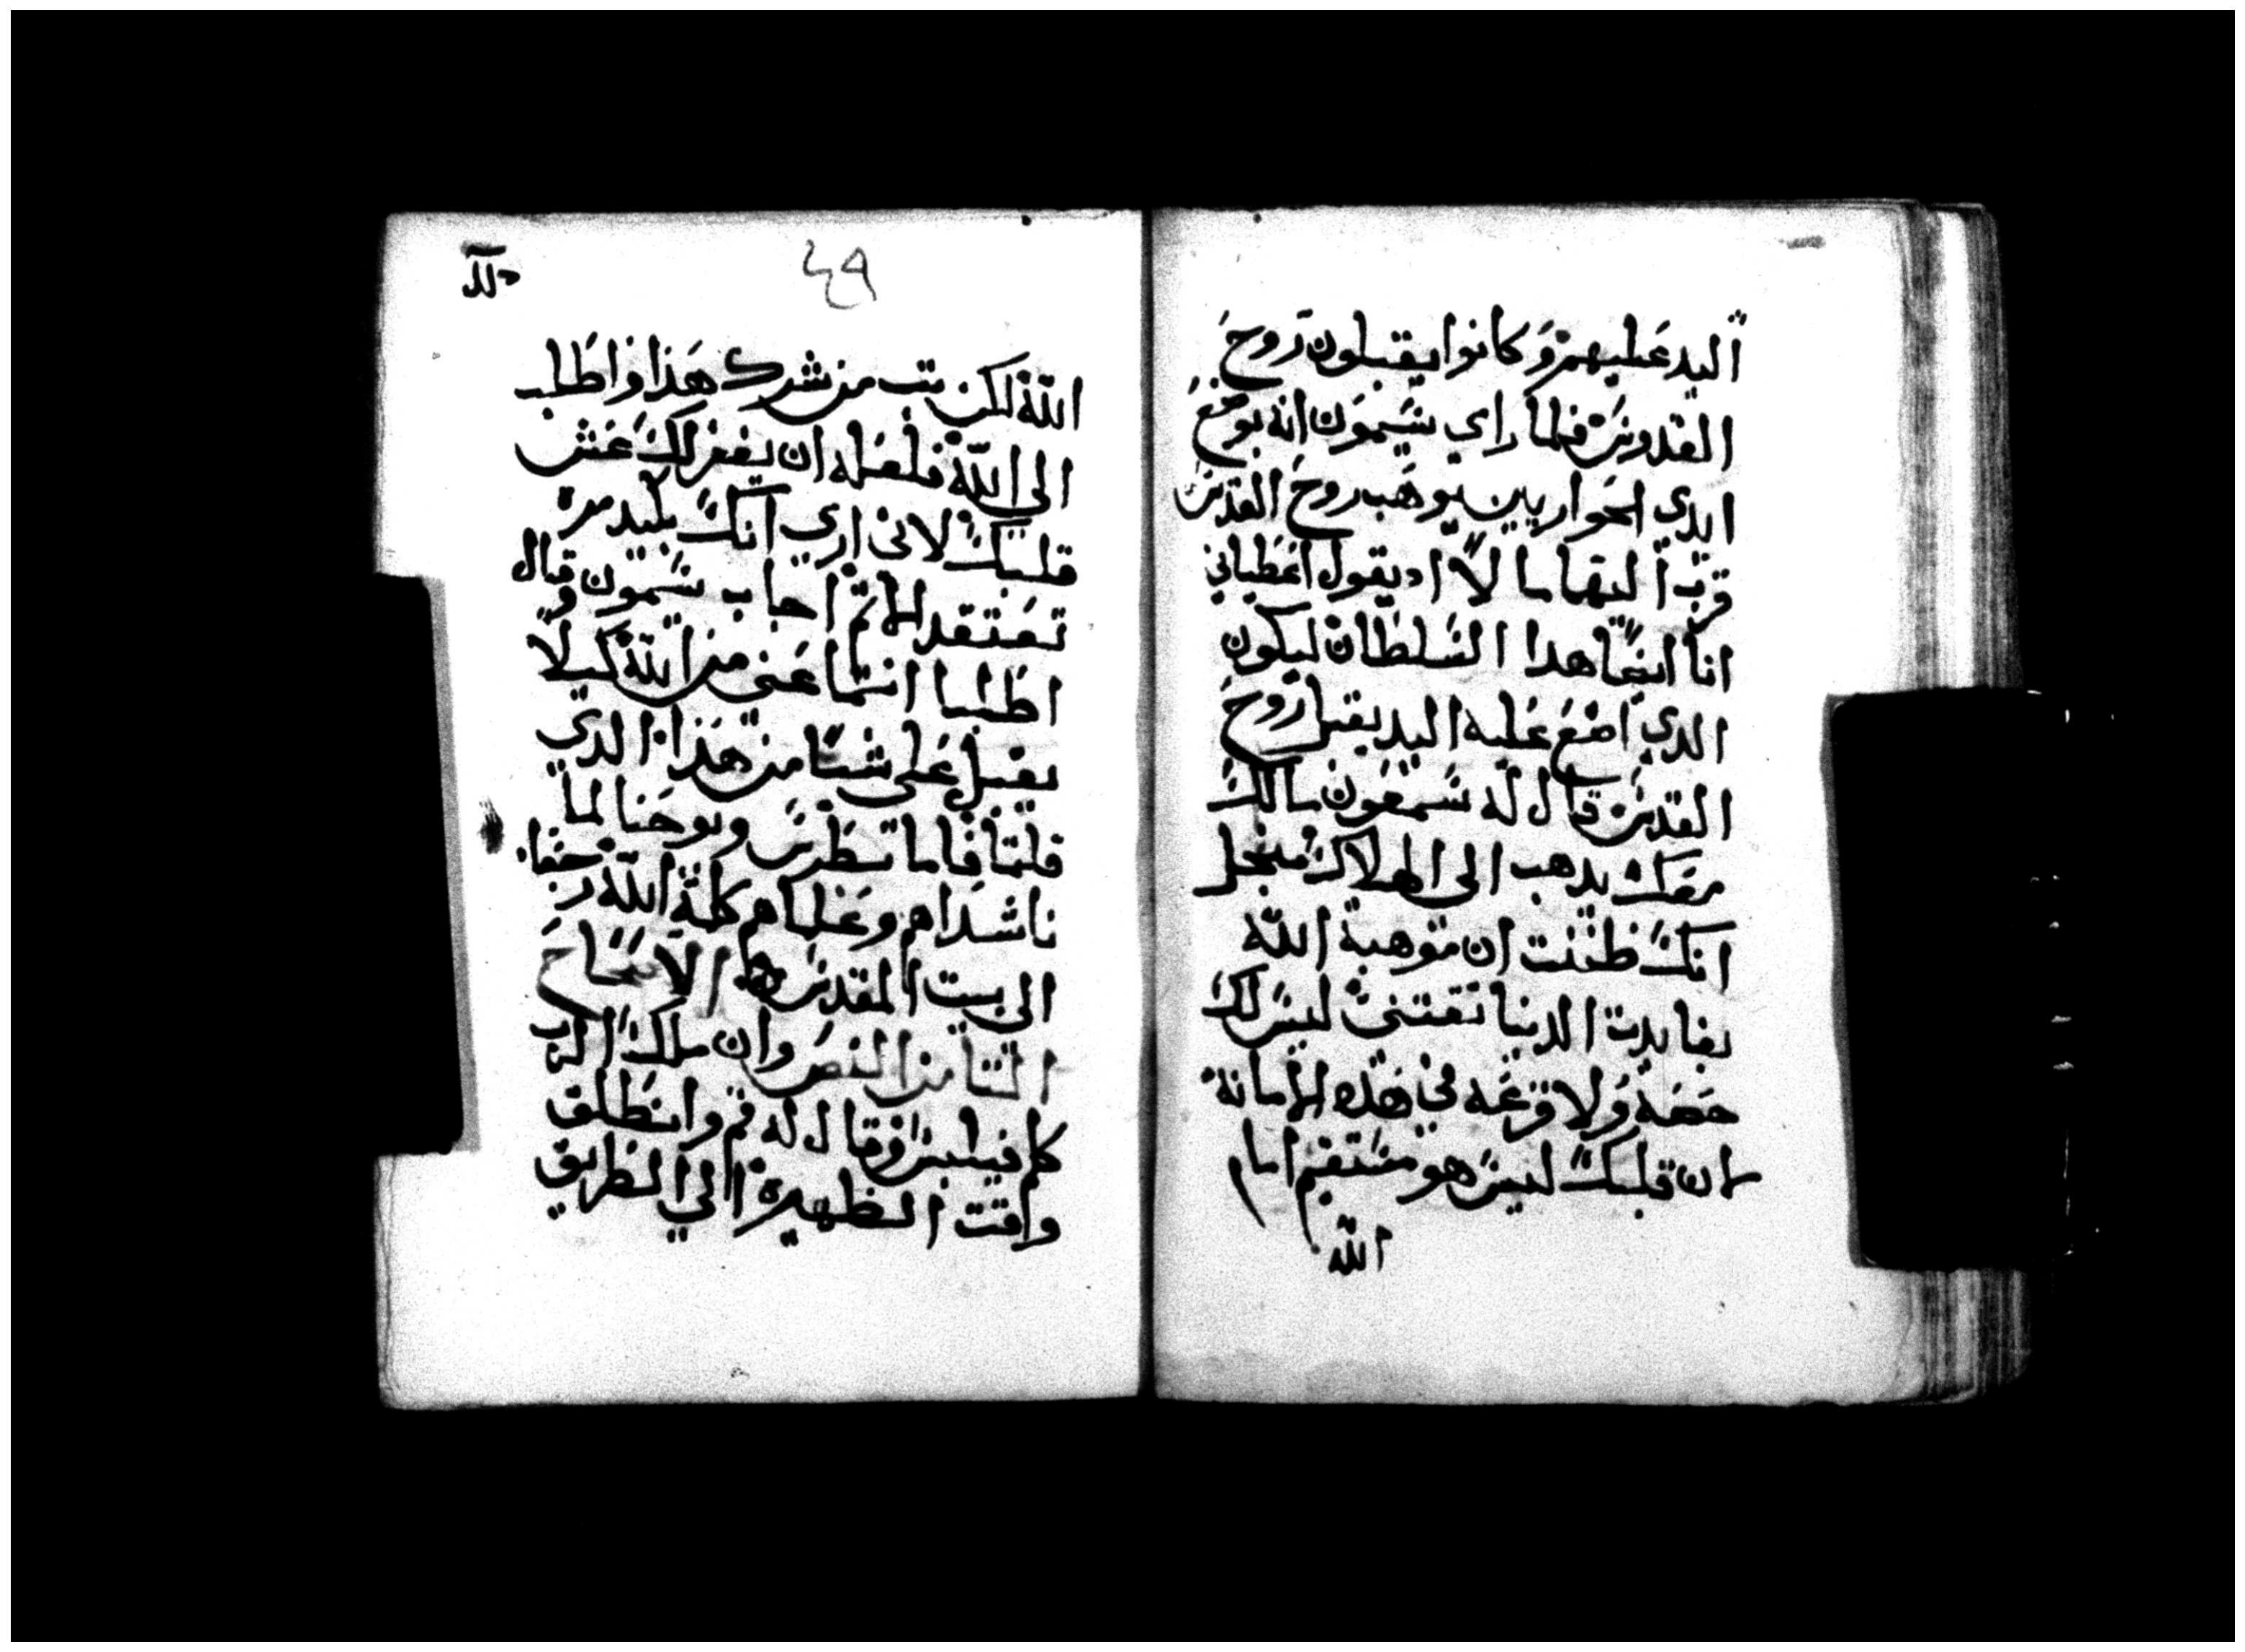 اليد عليهم وكانوا يقبلون روح
القدوس فلما راي سيمون انه بوضع
ايدي الحواريين يوهب روح القدس
قرب اليهما مالا اد يقول اعطياني
انا ايضا هدا السلطان ليكون
الدي اضع عليه اليد يقبل روح
القدس قال له سمعون مالك
معك يدهب الى الهلاك منجل
انك ظننت ان موهبة الله
بفايدت الدنيا تقتنى ليس لك
حصة ولا قرعه في هذه الامانة
لان قلبك ليس هو مستقيم امام
الله
٤٩
الله لكن تب من شرك هذا واطلب
الى الله فلعله ان يغفر لك غش
قلبك لانى اري انك بكبد مرة
تعتقد اثم اجاب سيمون وقال
اطلبا انتما عني من الله كيلا
يقبل على شيا من هذا الدي
قلتما فاما بطرس ويوحنا لما
ناشداهم وعلماهم كلمة الله رجعا
الى بيت المقدس الاصحاح
التامن النص وان ملك الرب
كلم فيلبس وقال له قم وانطلق
واقت الظهيرة الي الطريق